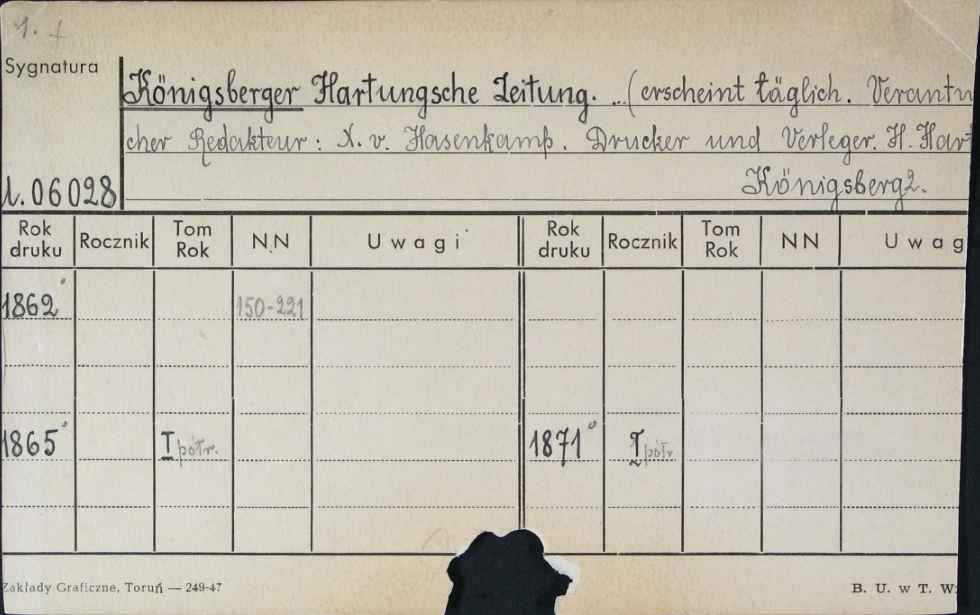 1. f
Sygnatura
Königsberger Hartungsche Zeitung. ...(erscheint täglich. Verantw
cher Redakteur: X. v. Hasenkamp. Drucker und Verleger. H. Har-
06028
Königsberg
Rok druku Rocznik Tom Rok N.N Uwagi Rok druku Rocznik Tom Rok NN Uwag
1862 150-221
1865 I półr. 1871 I półr.
Zakłady Graficzne, Toruń — 249-47 B. U. w T. W